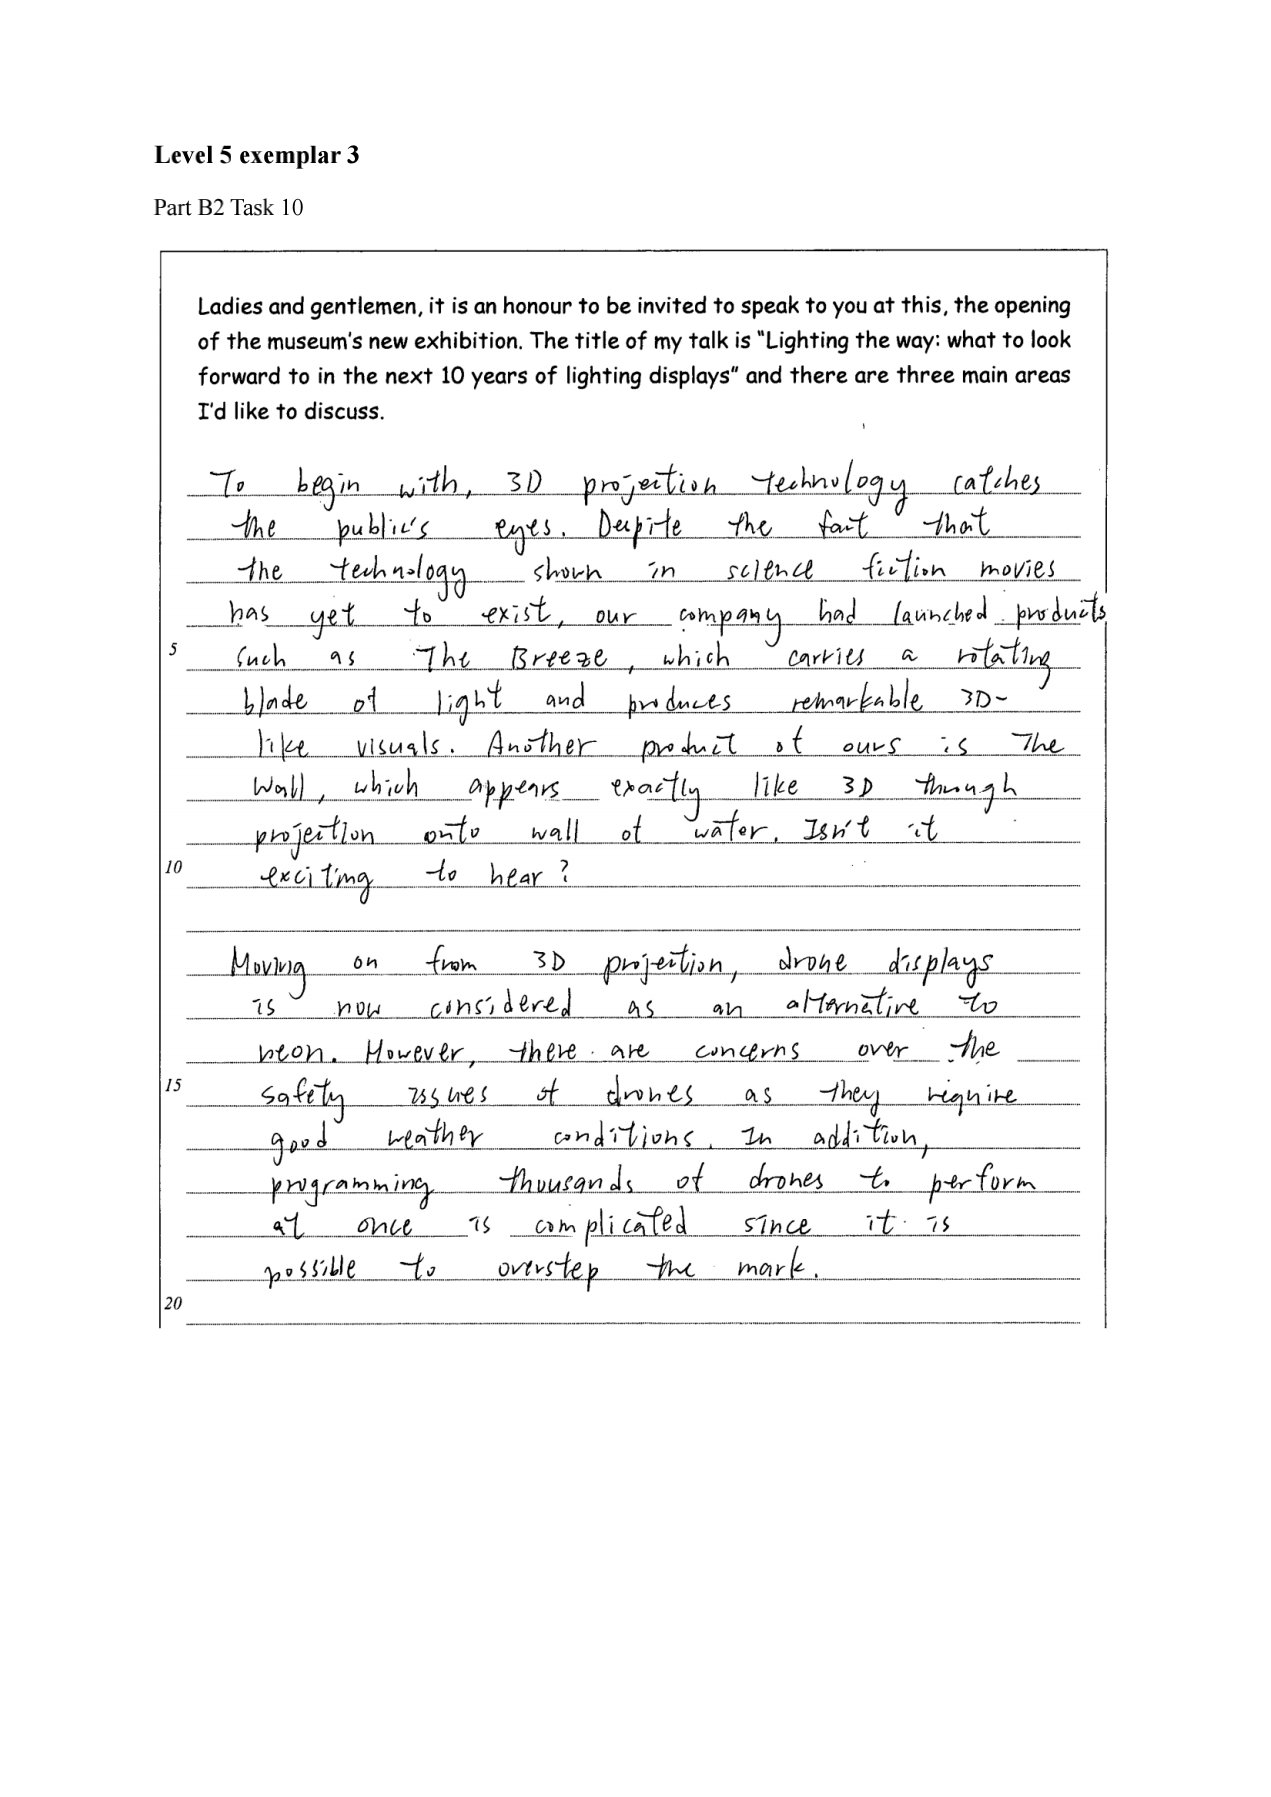 Level 5 exemplar 3
Part B2 Task 10
Ladies and gentlemen, it is an honour to be invited to speak to you at this, the opening
of the museum's new exhibition. The title of my talk is "Lighting the way: what to look
forward to in the next 10 years of lighting displays" and there are three main areas
I'd like to discuss.
To begin with, 3D projection technology catches
the public's eyes. Despite the fact that
the technology shown in science fiction movies
has yet to exist, our company had launched products
5 such as The Breeze, which carries a rotating
blade of light and produces remarkable 3D-
like visuals. Another product of ours is The
Wall, which appears exactly like 3D through
projection onto wall of water. Isn't it
10 exciting to hear?
Moving on from 3D projection, drone displays
is now considered as an alternative to
neon. However, there are concerns over the
15 safety issues of drones as they require
good weather conditions. In addition,
programming thousands of drones to perform
at once is complicated since it is
possible to overstep the mark.
20